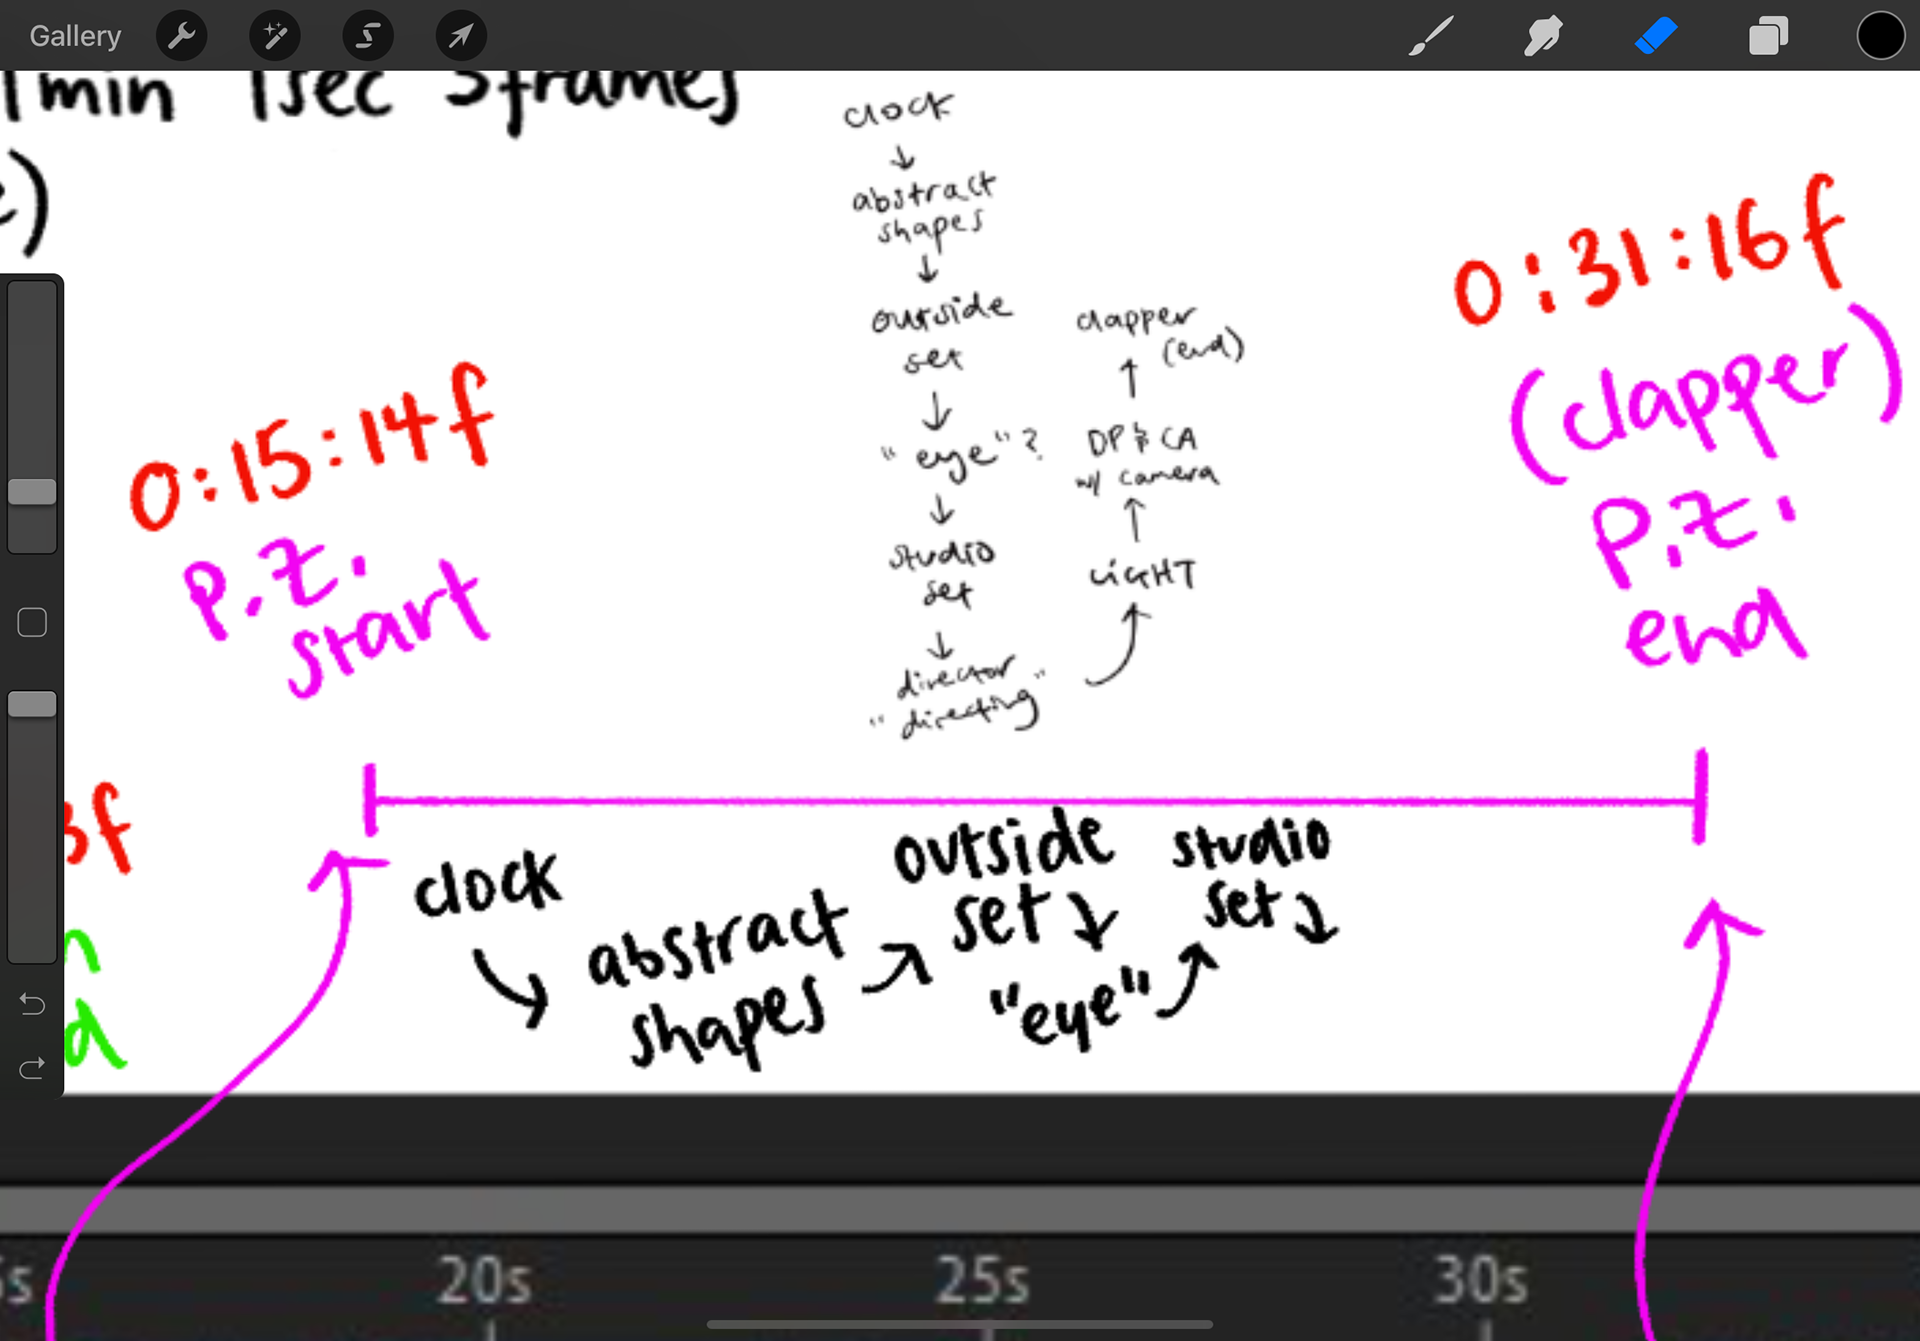 Gallery
1min 1sec 3frames
clock
↓
abstract
shapes
↓
outside
set
↓
"eye"?
↓
studio
set
↓
director
"directing"
LIGHT
↑
DP & CA
w/ camera
↑
clapper
(end)
0:15:14f
P.Z.
start
0:31:16f
(clapper)
P.Z.
end
3f
clock
abstract
shapes
outside
set
"eye"
studio
set
20s
25s
30s